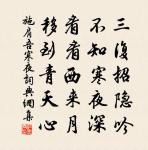 三復招隐吟
不知寒夜深
看看西来月
移到青天心
施肩吾寒夜詞典網集